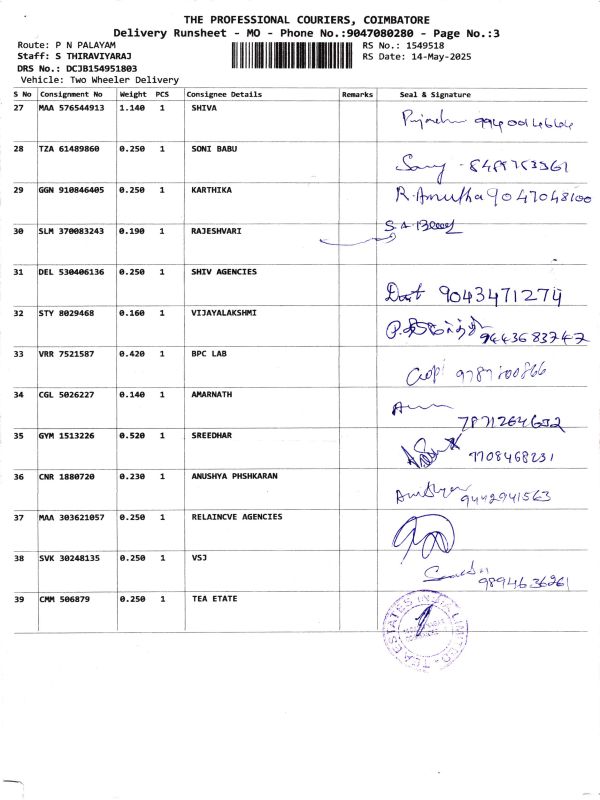 THE PROFESSIONAL COURIERS, COIMBATORE
Delivery Runsheet - MO - Phone No.:9047080280 - Page No.:3
Route: P N PALAYAM RS No.: 1549518
Staff: S THIRAVIYARAJ RS Date: 14-May-2025
DRS No.: DCJB154951803
Vehicle: Two Wheeler Delivery
S No Consignment No Weight PCS Consignee Details Remarks Seal & Signature
27 MAA 576544913 1.140 1 SHIVA
28 TZA 61489860 0.250 1 SONI BABU
29 GGN 910846405 0.250 1 KARTHIKA R.Amutha 9047048100
30 SLM 370083243 0.190 1 RAJESHVARI
31 DEL 530406136 0.250 1 SHIV AGENCIES 9043471274
32 STY 8029468 0.160 1 VIJAYALAKSHMI 9443683747
33 VRR 7521587 0.420 1 BPC LAB Gopi
34 CGL 5026227 0.140 1 AMARNATH 7871264652
35 GYM 1513226 0.520 1 SREEDHAR 7708468231
36 CNR 1880720 0.230 1 ANUSHYA PHSHKARAN 9442941563
37 MAA 303621057 0.250 1 RELAINCVE AGENCIES
38 SVK 30248135 0.250 1 VSJ 9894636261
39 CMM 506879 0.250 1 TEA ETATE
TEA ESTATES INDIA LIMITED